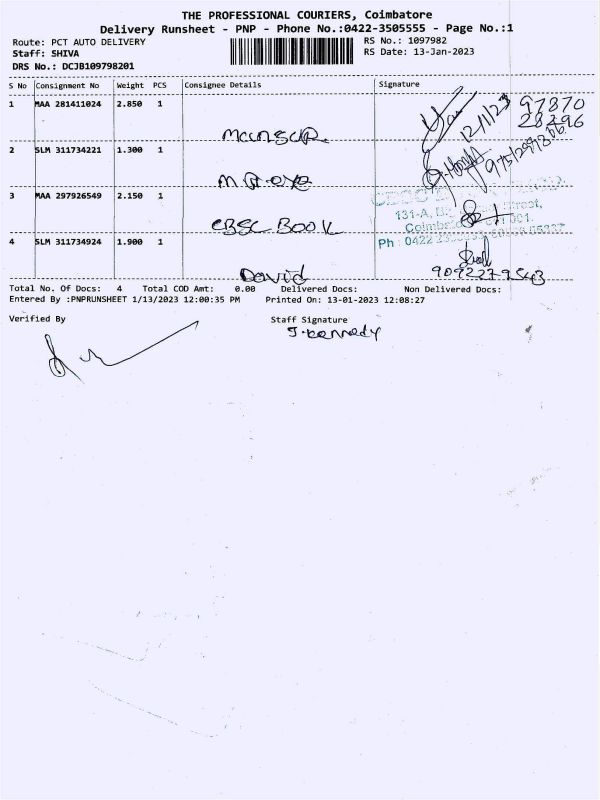 THE PROFESSIONAL COURIERS, Coimbatore
Delivery Runsheet - PNP - Phone No.:0422-3505555 - Page No.:1
Route: PCT AUTO DELIVERY
Staff: SHIVA
DRS No.: DCJB109798201
RS No.: 1097982
RS Date: 13-Jan-2023
S No Consignment No Weight PCS Consignee Details Signature
1 MAA 281411024 2.850 1
97870
12/1/23
28296
Mansur
2 SLM 311734221 1.300 1
3 MAA 297926549 2.150 1
131-A, Street,
CBSC BOOK
Ph : 0422
4 SLM 311734924 1.900 1
David
9092279543
Total No. Of Docs: 4 Total COD Amt: 0.00 Delivered Docs: Non Delivered Docs:
Entered By :PNPRUNSHEET 1/13/2023 12:00:35 PM Printed On: 13-01-2023 12:08:27
Verified By Staff Signature
J. Kennedy